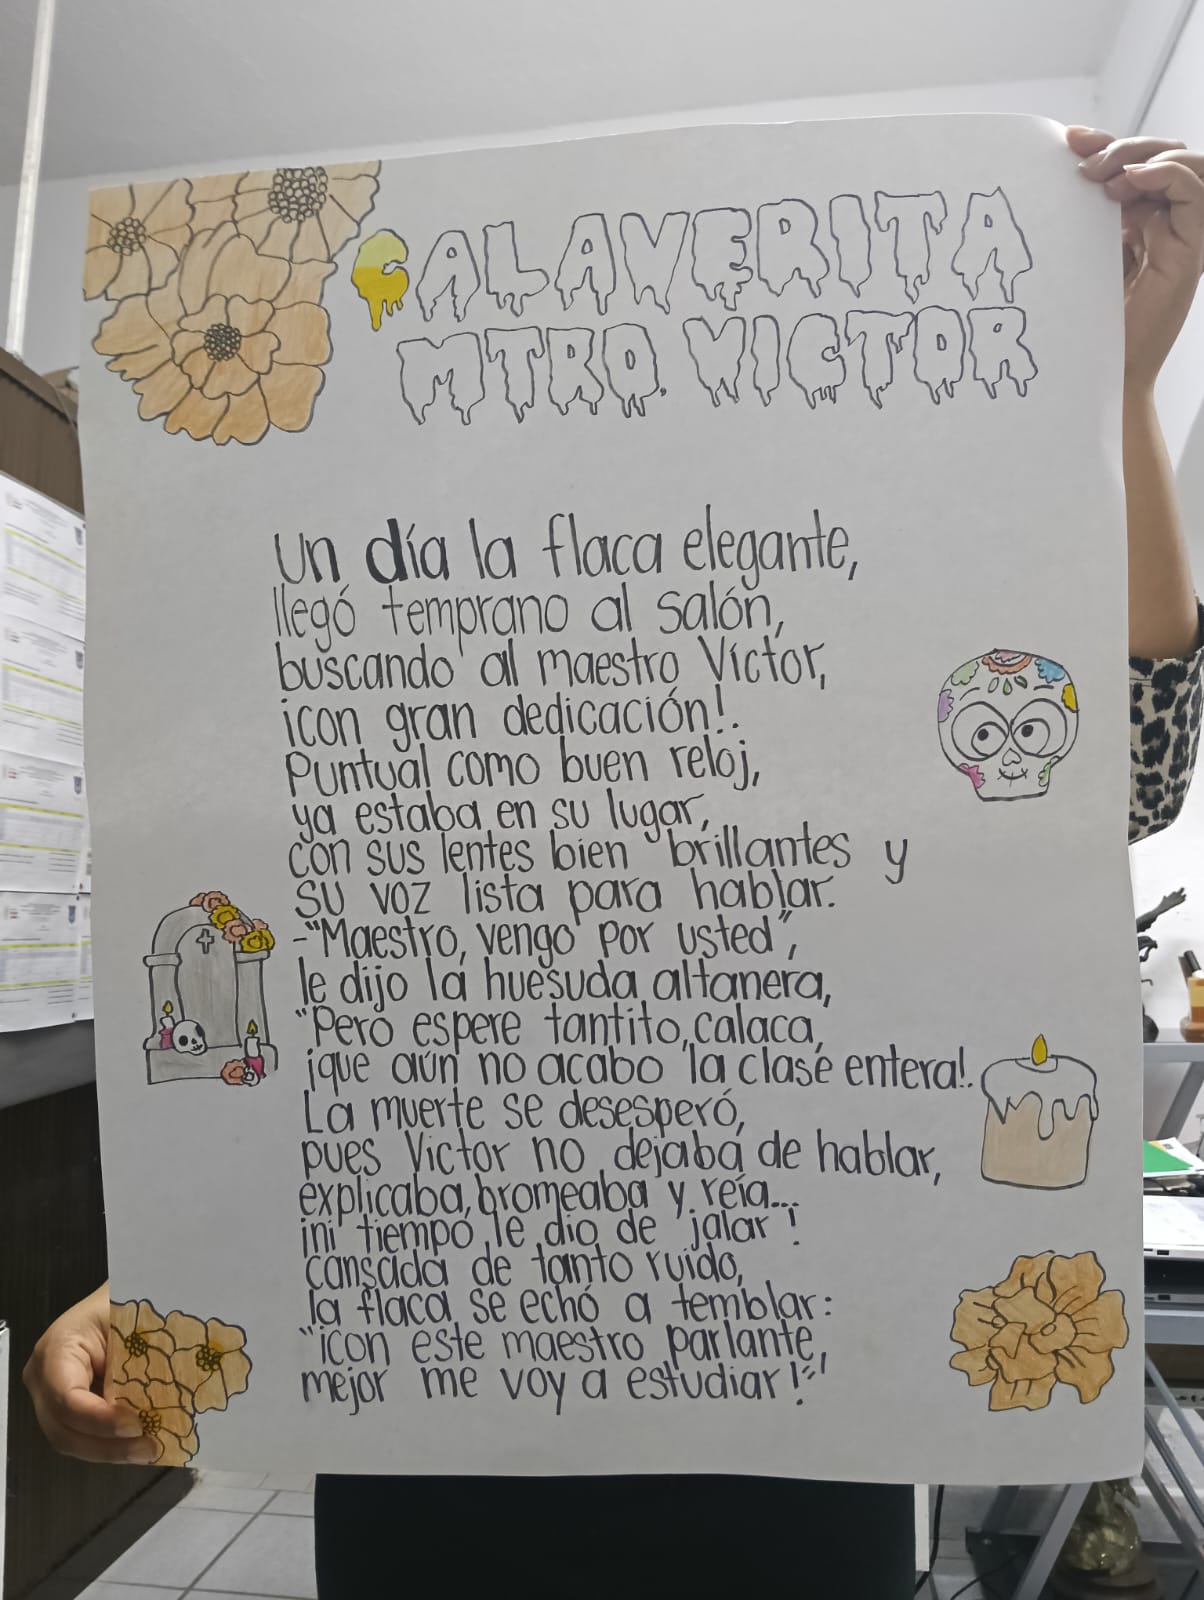 CALAVERITA
MTRO. VICTOR
Un día la flaca elegante,
llegó temprano al salón,
buscando al maestro Víctor,
¡con gran dedicación!.
Puntual como buen reloj,
ya estaba en su lugar,
con sus lentes bien brillantes y
su voz lista para hablar.
-"Maestro, vengo por usted",
le dijo la huesuda altanera,
"Pero espere tantito, calaca,
¡que aún no acabo la clase entera!.
La muerte se desesperó,
pues Victor no dejaba de hablar,
explicaba, bromeaba y reía...
¡ni tiempo le dio de jalar!
cansada de tanto ruido,
la flaca se echó a temblar:
"¡con este maestro parlante,
mejor me voy a estudiar!"